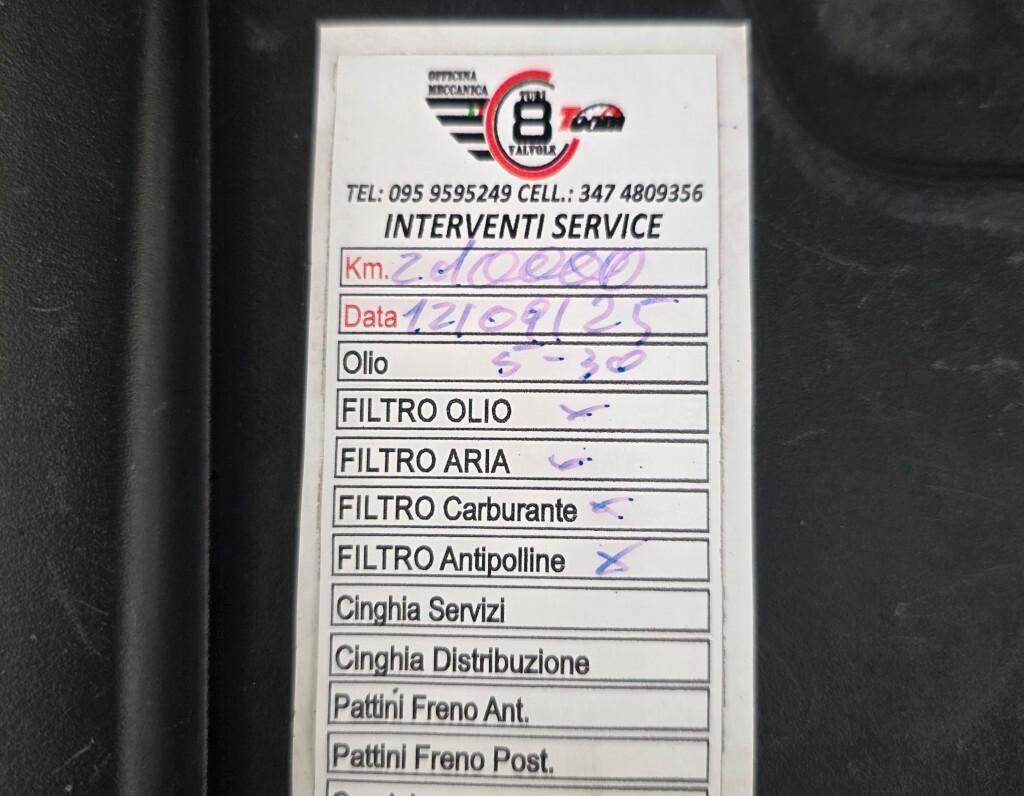 OFFICINA
MECCANICA
TURI
8
VALVOLE
Team
TEL: 095 9595249 CELL.: 347 4809356
INTERVENTI SERVICE
Km. 210000
Data 12/09/25
Olio 5-30
FILTRO OLIO x
FILTRO ARIA
FILTRO Carburante x
FILTRO Antipolline x
Cinghia Servizi
Cinghia Distribuzione
Pattini Freno Ant.
Pattini Freno Post.